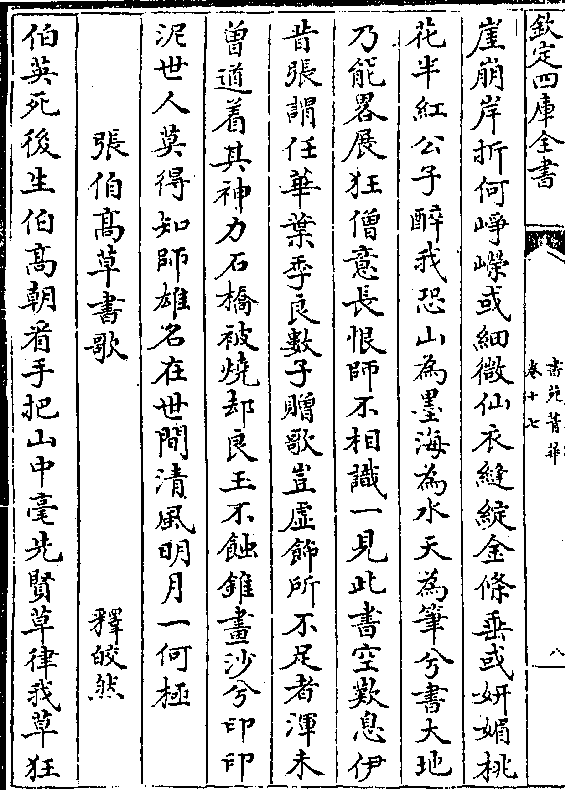 欽定四庫全書
書苑菁華
卷十七
八
崖崩岸折何崢嶸或細微仙衣縫綻金條垂或妍媚桃
花半紅公子醉我恐山為墨海為水天為筆兮書大地
乃能畧展狂僧意長恨師不相識一見此書空歎息伊
昔張謂任華葉季良數子贈歌豈虛飾所不足者渾未
曾道着其神力石橋被燒却良玉不蝕錐畫沙兮印印
泥世人莫得知師雄名在世間清風明月一何極
張伯髙草書歌
釋皎然
伯英死後生伯髙朝看手把山中毫先賢草律我草狂